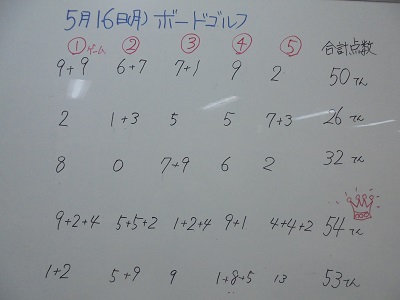 5月16日(月)ボードゴルフ
①ゲーム ② ③ ④ ⑤ 合計点数
9+9 6+7 7+1 9 2 50てん
2 1+3 5 5 7+3 26てん
8 0 7+9 6 2 32てん
9+2+4 5+5+2 1+2+4 9+1 4+4+2 54てん
1+2 5+9 9 1+8+5 13 53てん